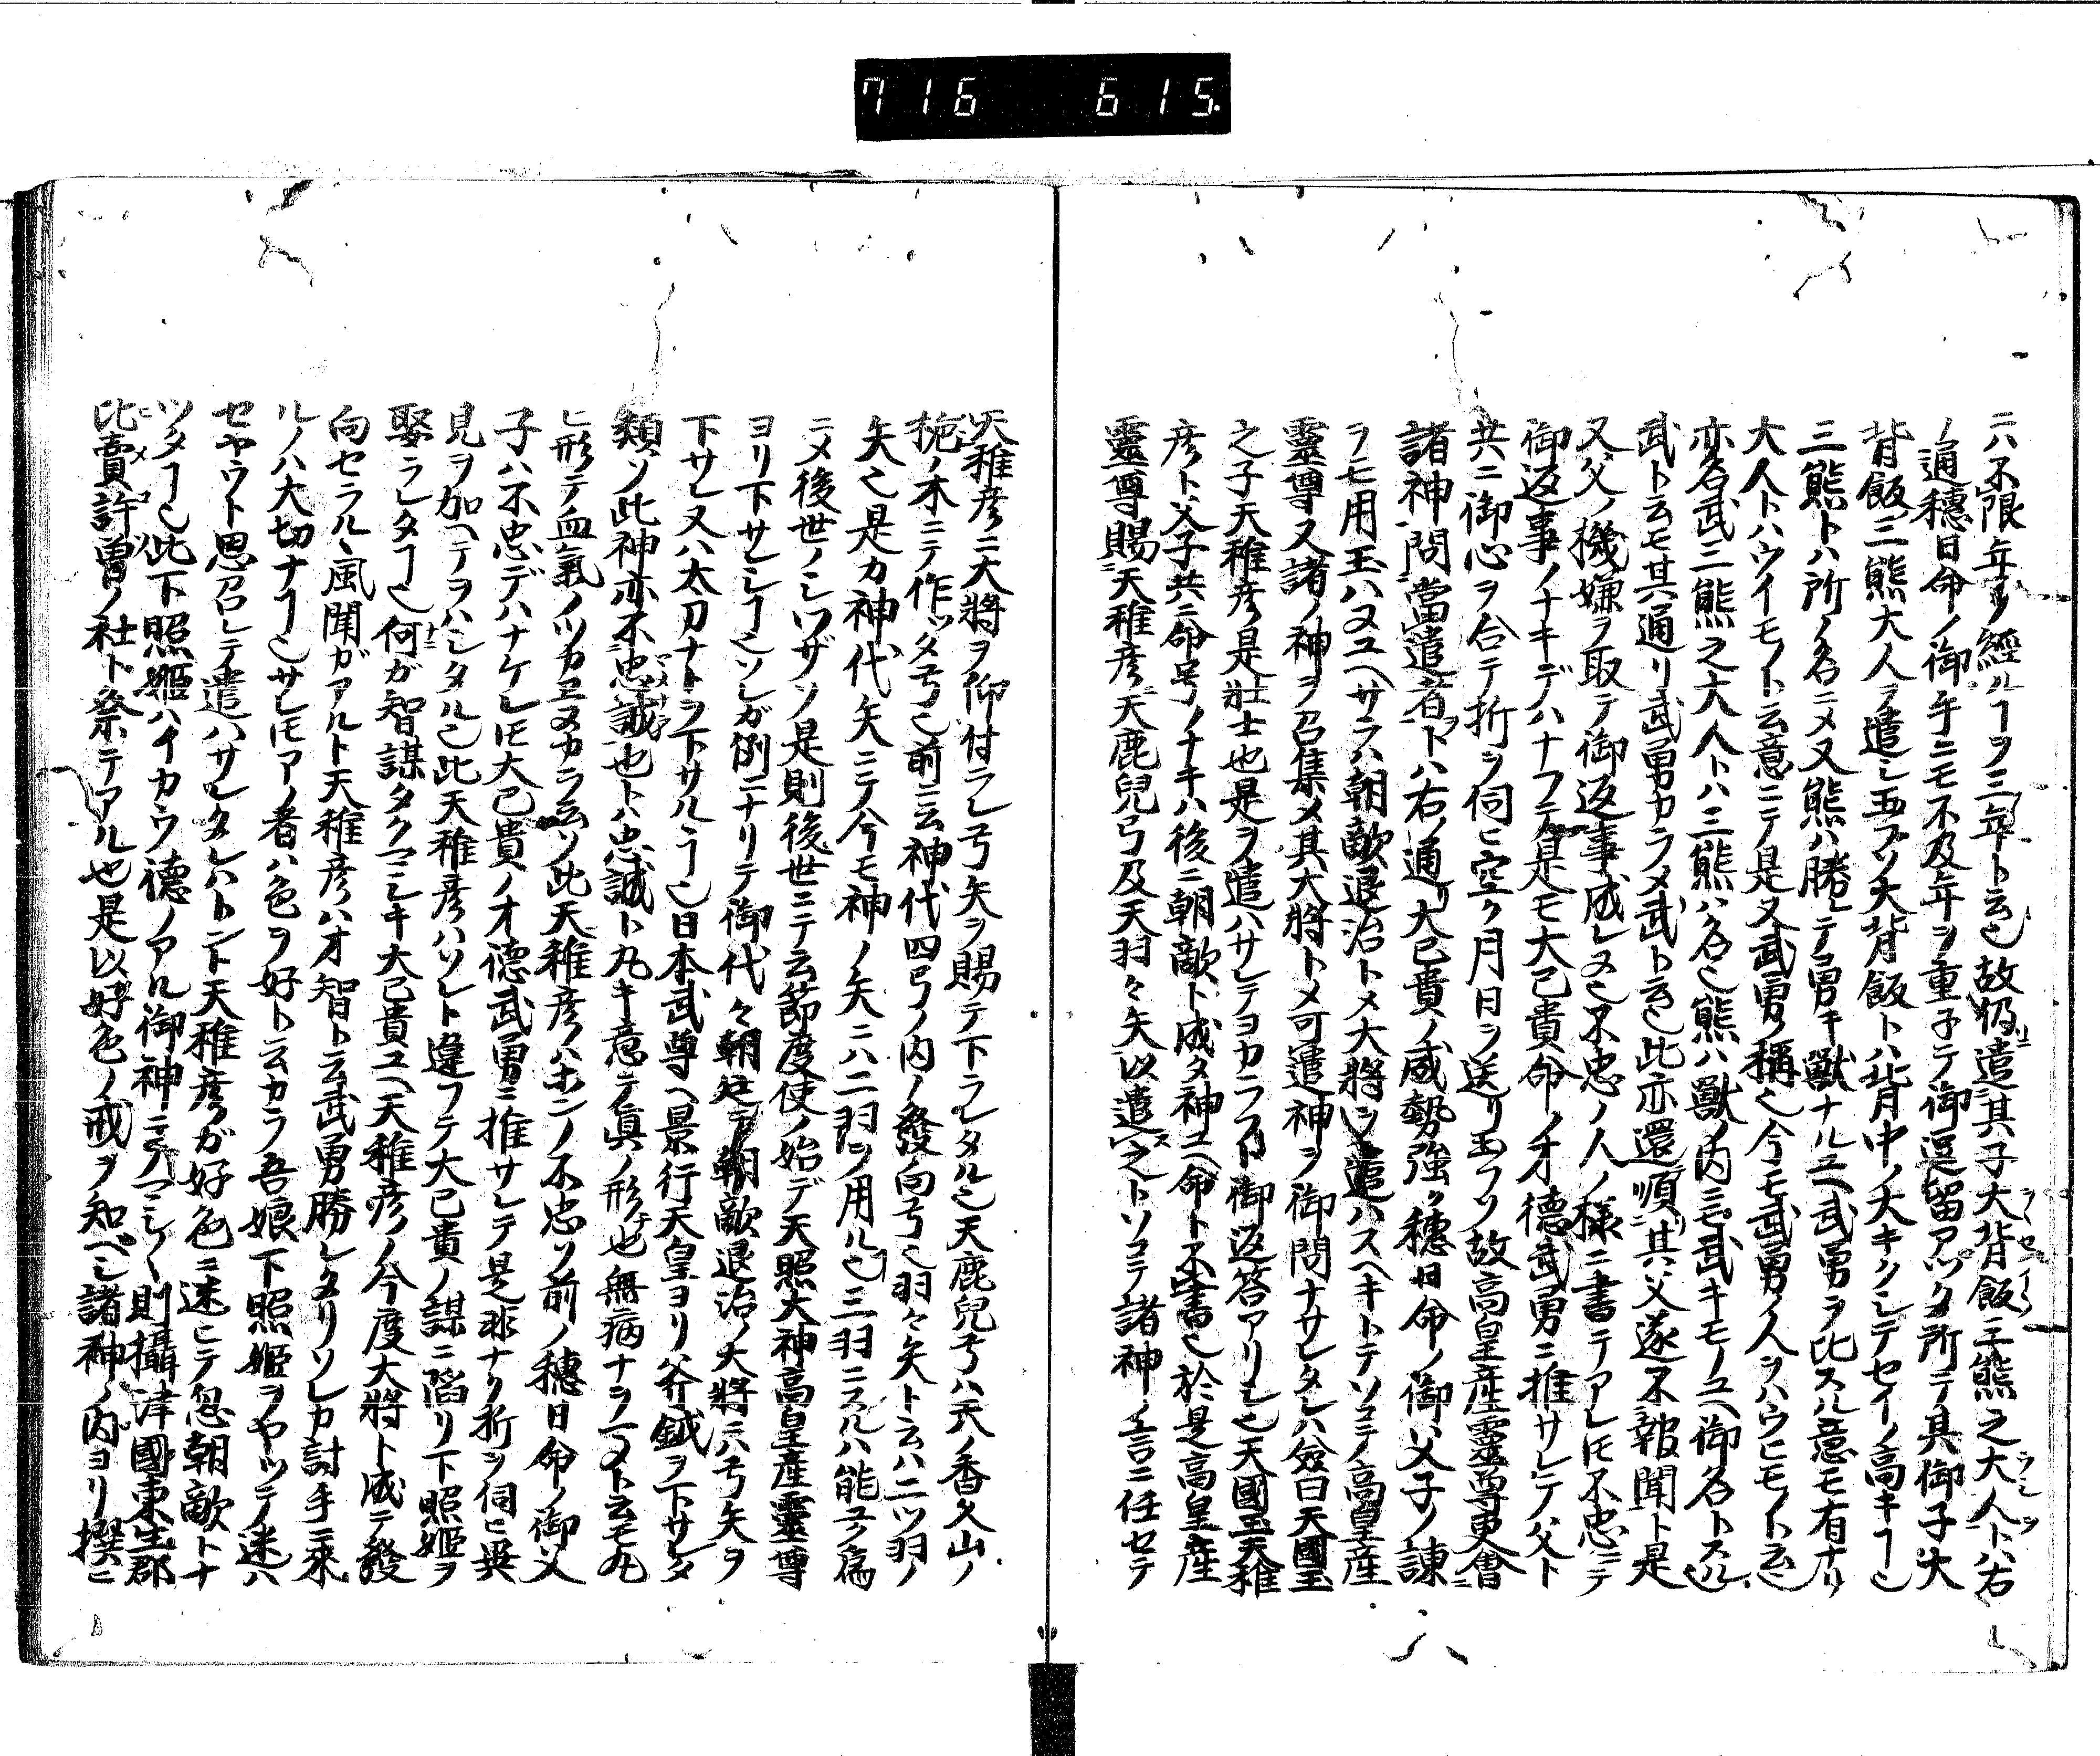 716 615.
ニハ不限年ヲ經ルヿヲ三年ト云也故仍遣其子大背飯三熊之大人トハ右
ノ通穗日命ノ御年ニモ不及年ヲ重子テ御逗留アツタ所テ其御子大
背飯三熊大人ヲ遣シ玉フソ大背飯トハ背中ノ大キクシテセイノ高キヿ也
三熊トハ所ノ名ニメ又熊ハ勝レテ勇キ獸ナルユヘ武勇ヲ比スル意モ有ナリ
大人トハウイモノト云意ニテ是又武勇ノ稱也今モ武勇ノ人ヲハウヒモノト云也
亦名武三熊之大人トハ三熊ハ名也熊ハ獸ノ内ニモ武キモノユヘ御名トスル也
武ト云モ其通リ武勇カラメ武ト云也此亦還順其父遂不報聞ト是
又父ノ機嫌ヲ取テ御返事成レヌ也不忠ノ人ノ樣ニ書テアレ𪜈不忠ニテ
御返事ノナキデハナフテ是モ大己貴命ノ才德武勇ニ推サレテ父ト
共ニ御心ヲ合テ折ヲ伺ヒ空ク月日ヲ送リ玉フソ故高皇産靈尊更會
諸神問當遣者トハ右ノ通リ大己貴ノ威勢強ク穗日命ノ御父子ノ諌
ヲモ用玉ハヌユヘサラハ朝敵退治トメ大將ヲ遣ハスヘキトテソコテ高皇産
靈尊又諸ノ神ヲ召集メ其大將トメ可遣神ヲ御問ナサレタレハ僉曰天國玉
之子天稚彦是壯士也是ヲ遣ハサレテヨカラフト御返答アリシ也天國玉天稚
彦ト父子共ニ命号ノナキハ後ニ朝敵ト成タ神ユヘ命ト不書也於是高皇産
靈尊賜天稚彦天鹿兒弓及天羽々矢以遣之トソコテ諸神ノ言ニ任セテ
天稚彦ニ大將ヲ仰付ラレ弓矢ヲ賜テ下ラレタル也天鹿兒弓ハ天ノ香久山ノ
栬ノ木ニテ作ツタ弓也前ニ云神代四弓ノ内ノ發向弓也羽々矢ト云ハ二ツ羽ノ
矢也是カ神代矢ニテ今モ神ノ矢ニハ二羽ヲ用ル也三羽ニスルハ能ユク爲
ニメ後世ノシワザソ是則後世ニテ云節度使ノ始デ天照大神高皇産靈尊
ヨリ下サレシヿ也ソレガ例ニナリテ御代々朝廷ヨリ朝敵退治ノ大將ニハ弓矢ヲ
下サレ又ハ太刀ナトヲ下サルヽヿ也日本武尊ヘ景行天皇ヨリ斧鉞ヲ下サレタ
類ソ此神亦不忠誠也トハ忠誠ト丸キ意テ眞ノ形也無病ナヲマメト云モ丸
ヒ形テ血氣ノツカヱヌカラ云ソ此天稚彦ハホンノ不忠ソ前ノ穗日命ノ御父
子ハ不忠デハナケレ𪜈大己貴ノ才德武勇ニ推サレテ是非ナク折ヲ伺ヒ異
見ヲ加ヘテヲハシタル也此天稚彦ハソレト違フテ大己貴ノ謀ニ陷リ下照姫ヲ
娶ラレタヿ也何ガ智謀タクマシキ大己貴ユヘ天稚彦ノ今度大將ト成テ發
向セラルヽ風聞ガアルト天稚彦ハ才智ト云武勇勝レタリソレカ討手ニ來
ルノハ大切ナヿ也サレ𪜈アノ者ハ色ヲ好ト云カラ吾娘下照姫ヲヤツテ迷ハ
セヤウト思召シテ遣ハサレタレハトント天稚彦ガ好色ニ迷ヒテ忽朝敵トナ
ツタヿ也此下照姫ハイカウ德ノアル御神ニテマシマス則攝津國東生郡
比賣許曽ノ社ト祭テアル也是以好色ノ戒ヲ知ベシ諸神ノ内ヨリ撰ニ